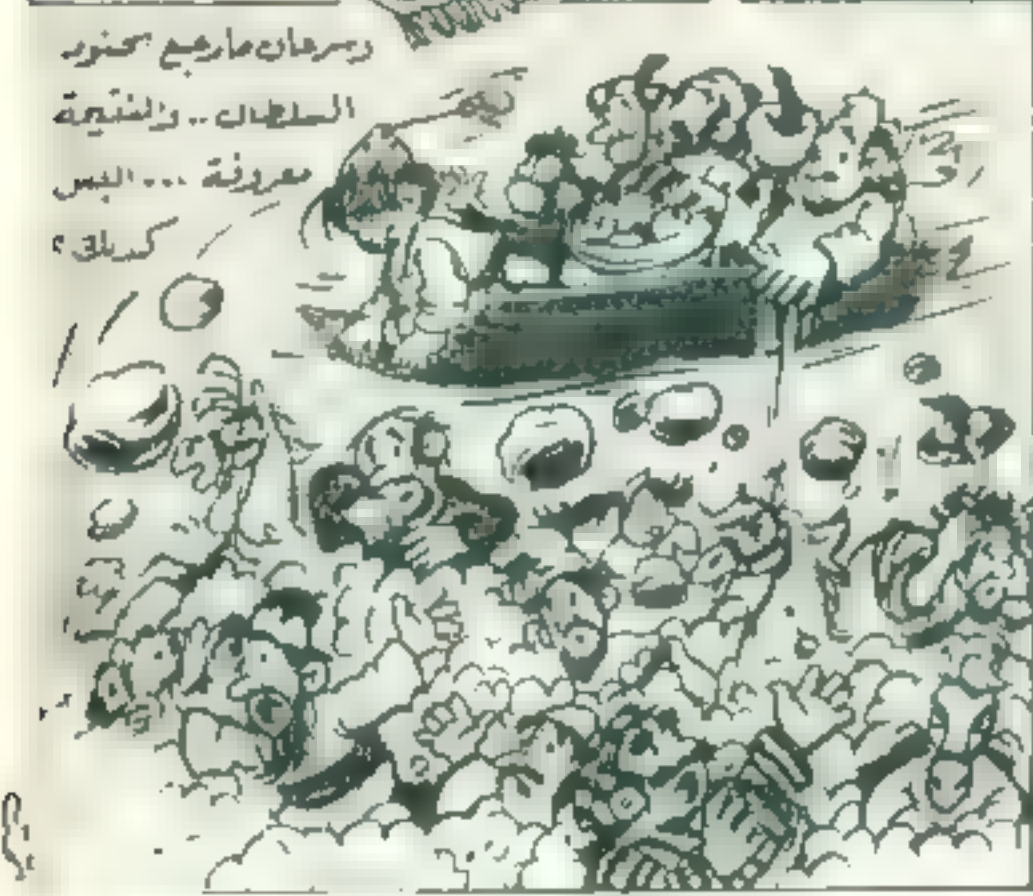 وسرعان ما رجع جنود
السلطان .. والنتيجة
معروفة ... اليس
كذلك ؟